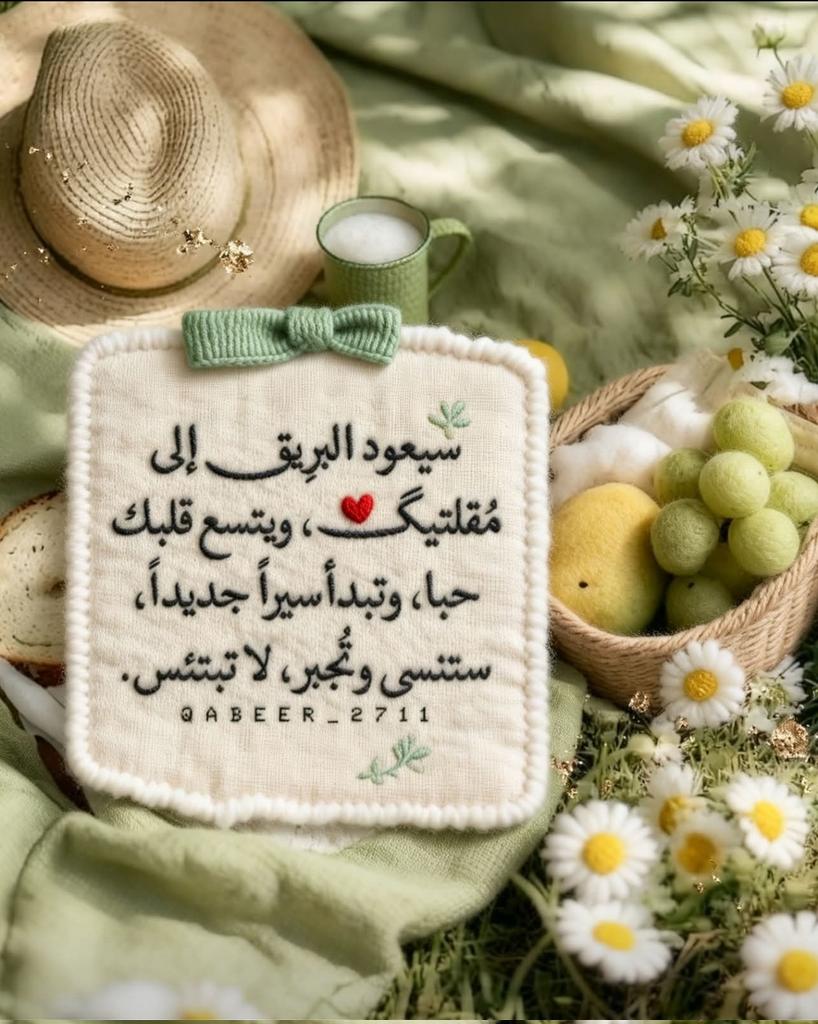 سيعود البرِيق إلى
مُقلتيك، ويتسع قلبك
حبا، وتبدأ سيراً جديداً،
ستنسى وتُجبر، لا تبتئس.
QABEER_2711